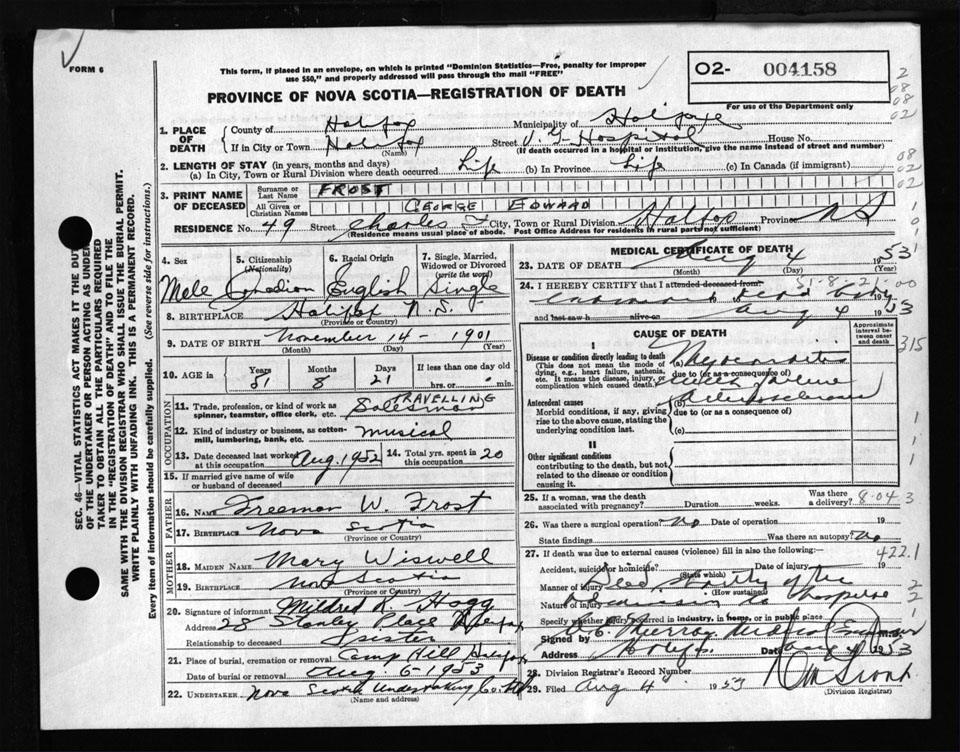 FORM 6
This form, if placed in an envelope, on which is printed "Dominion Statistics—Free, penalty for improper
use $50," and properly addressed will pass through the mail "FREE"
O2- 004158
PROVINCE OF NOVA SCOTIA—REGISTRATION OF DEATH
For use of the Department only
SEC. 46—VITAL STATISTICS ACT MAKES IT THE DUTY
OF THE UNDERTAKER OR PERSON ACTING AS UNDER-
TAKER TO OBTAIN ALL THE PARTICULARS REQUIRED
IN THE "REGISTRATION OF DEATH" AND TO FILE THE
SAME WITH THE DIVISION REGISTRAR WHO SHALL ISSUE THE BURIAL PERMIT.
WRITE PLAINLY WITH UNFADING INK. THIS IS A PERMANENT RECORD.
Every item of information should be carefully supplied. (See reverse side for instructions.)
1. PLACE OF DEATH
County of Halifax Municipality of Halifax
If in City or Town Halifax Street V. G. Hospital House No.
(Name) (If death occurred in a hospital or institution, give the name instead of street and number)
2. LENGTH OF STAY (in years, months and days)
(a) In City, Town or Rural Division where death occurred Life (b) In Province Life (c) In Canada (if immigrant)
3. PRINT NAME OF DECEASED
Surname or Last Name FROST
All Given or Christian Names GEORGE EDWARD
RESIDENCE No. 49 Street Charles St City, Town or Rural Division Halifax Province N S
(Residence means usual place of abode. Post Office Address for residents in rural parts not sufficient)
4. Sex Male
5. Citizenship (Nationality) Canadian
6. Racial Origin English
7. Single, Married, Widowed or Divorced (write the word) Single
8. BIRTHPLACE Halifax N.S.
(Province or Country)
9. DATE OF BIRTH November 14 - 1901
(Month) (Day) (Year)
10. AGE Years 51 Months 8 Days 21 If less than one day old
hrs. or min.
OCCUPATION
11. Trade, profession, or kind of work as spinner, teamster, office clerk, etc. TRAVELLING Salesman
12. Kind of industry or business, as cotton-mill, lumbering, bank, etc. musical
13. Date deceased last worked at this occupation Aug. 1952
14. Total yrs. spent in this occupation 20
15. If married give name of wife or husband of deceased
FATHER
16. NAME Freeman W. Frost
17. BIRTHPLACE Nova Scotia
(Province or Country)
MOTHER
18. MAIDEN NAME Mary Wiswell
19. BIRTHPLACE Nova Scotia
(Province or Country)
20. Signature of informant Mildred K. Hogg
Address 28 Stanley Place Halifax
Relationship to deceased sister
21. Place of burial, cremation or removal Camp Hill Halifax
Date of burial or removal Aug 6 1953
22. UNDERTAKER Nova Scotia Undertaking Co. Ltd
(Name and address)
MEDICAL CERTIFICATE OF DEATH
23. DATE OF DEATH Aug 4 1953
(Month) (Day) (Year)
24. I HEREBY CERTIFY that I attended deceased from: 51-8-21-00
examined dead body 19
and last saw h alive on Aug 4 1953
CAUSE OF DEATH
Approximate interval between onset and death
I
Disease or condition directly leading to death
(This does not mean the mode of dying, e.g., heart failure, asthenia, etc. It means the disease, injury, or complication which caused death.)
(a) Myocarditis
due to (or as a consequence of)
with failure
Antecedent causes
Morbid conditions, if any, giving rise to the above cause, stating the underlying condition last.
(b) Arteriosclerosis
due to (or as a consequence of)
(c)
II
Other significant conditions
contributing to the death, but not related to the disease or condition causing it.
25. If a woman, was the death associated with pregnancy? Duration weeks. Was there a delivery? 8-04 3
26. Was there a surgical operation No Date of operation 19
State findings Was there an autopsy? No
27. If death was due to external causes (violence) fill in also the following:— 422.1
Accident, suicide or homicide? (State which) Date of injury 19
Manner of injury Dead shortly after
(How sustained)
Nature of injury Admission to Hospital
Specify whether injury occurred in industry, in home, or in public place
Signed by Murray Medical Examiner
Address Halifax Date Aug 4 1953
28. Division Registrar's Record Number
29. Filed Aug 4 1953
(Division Registrar)